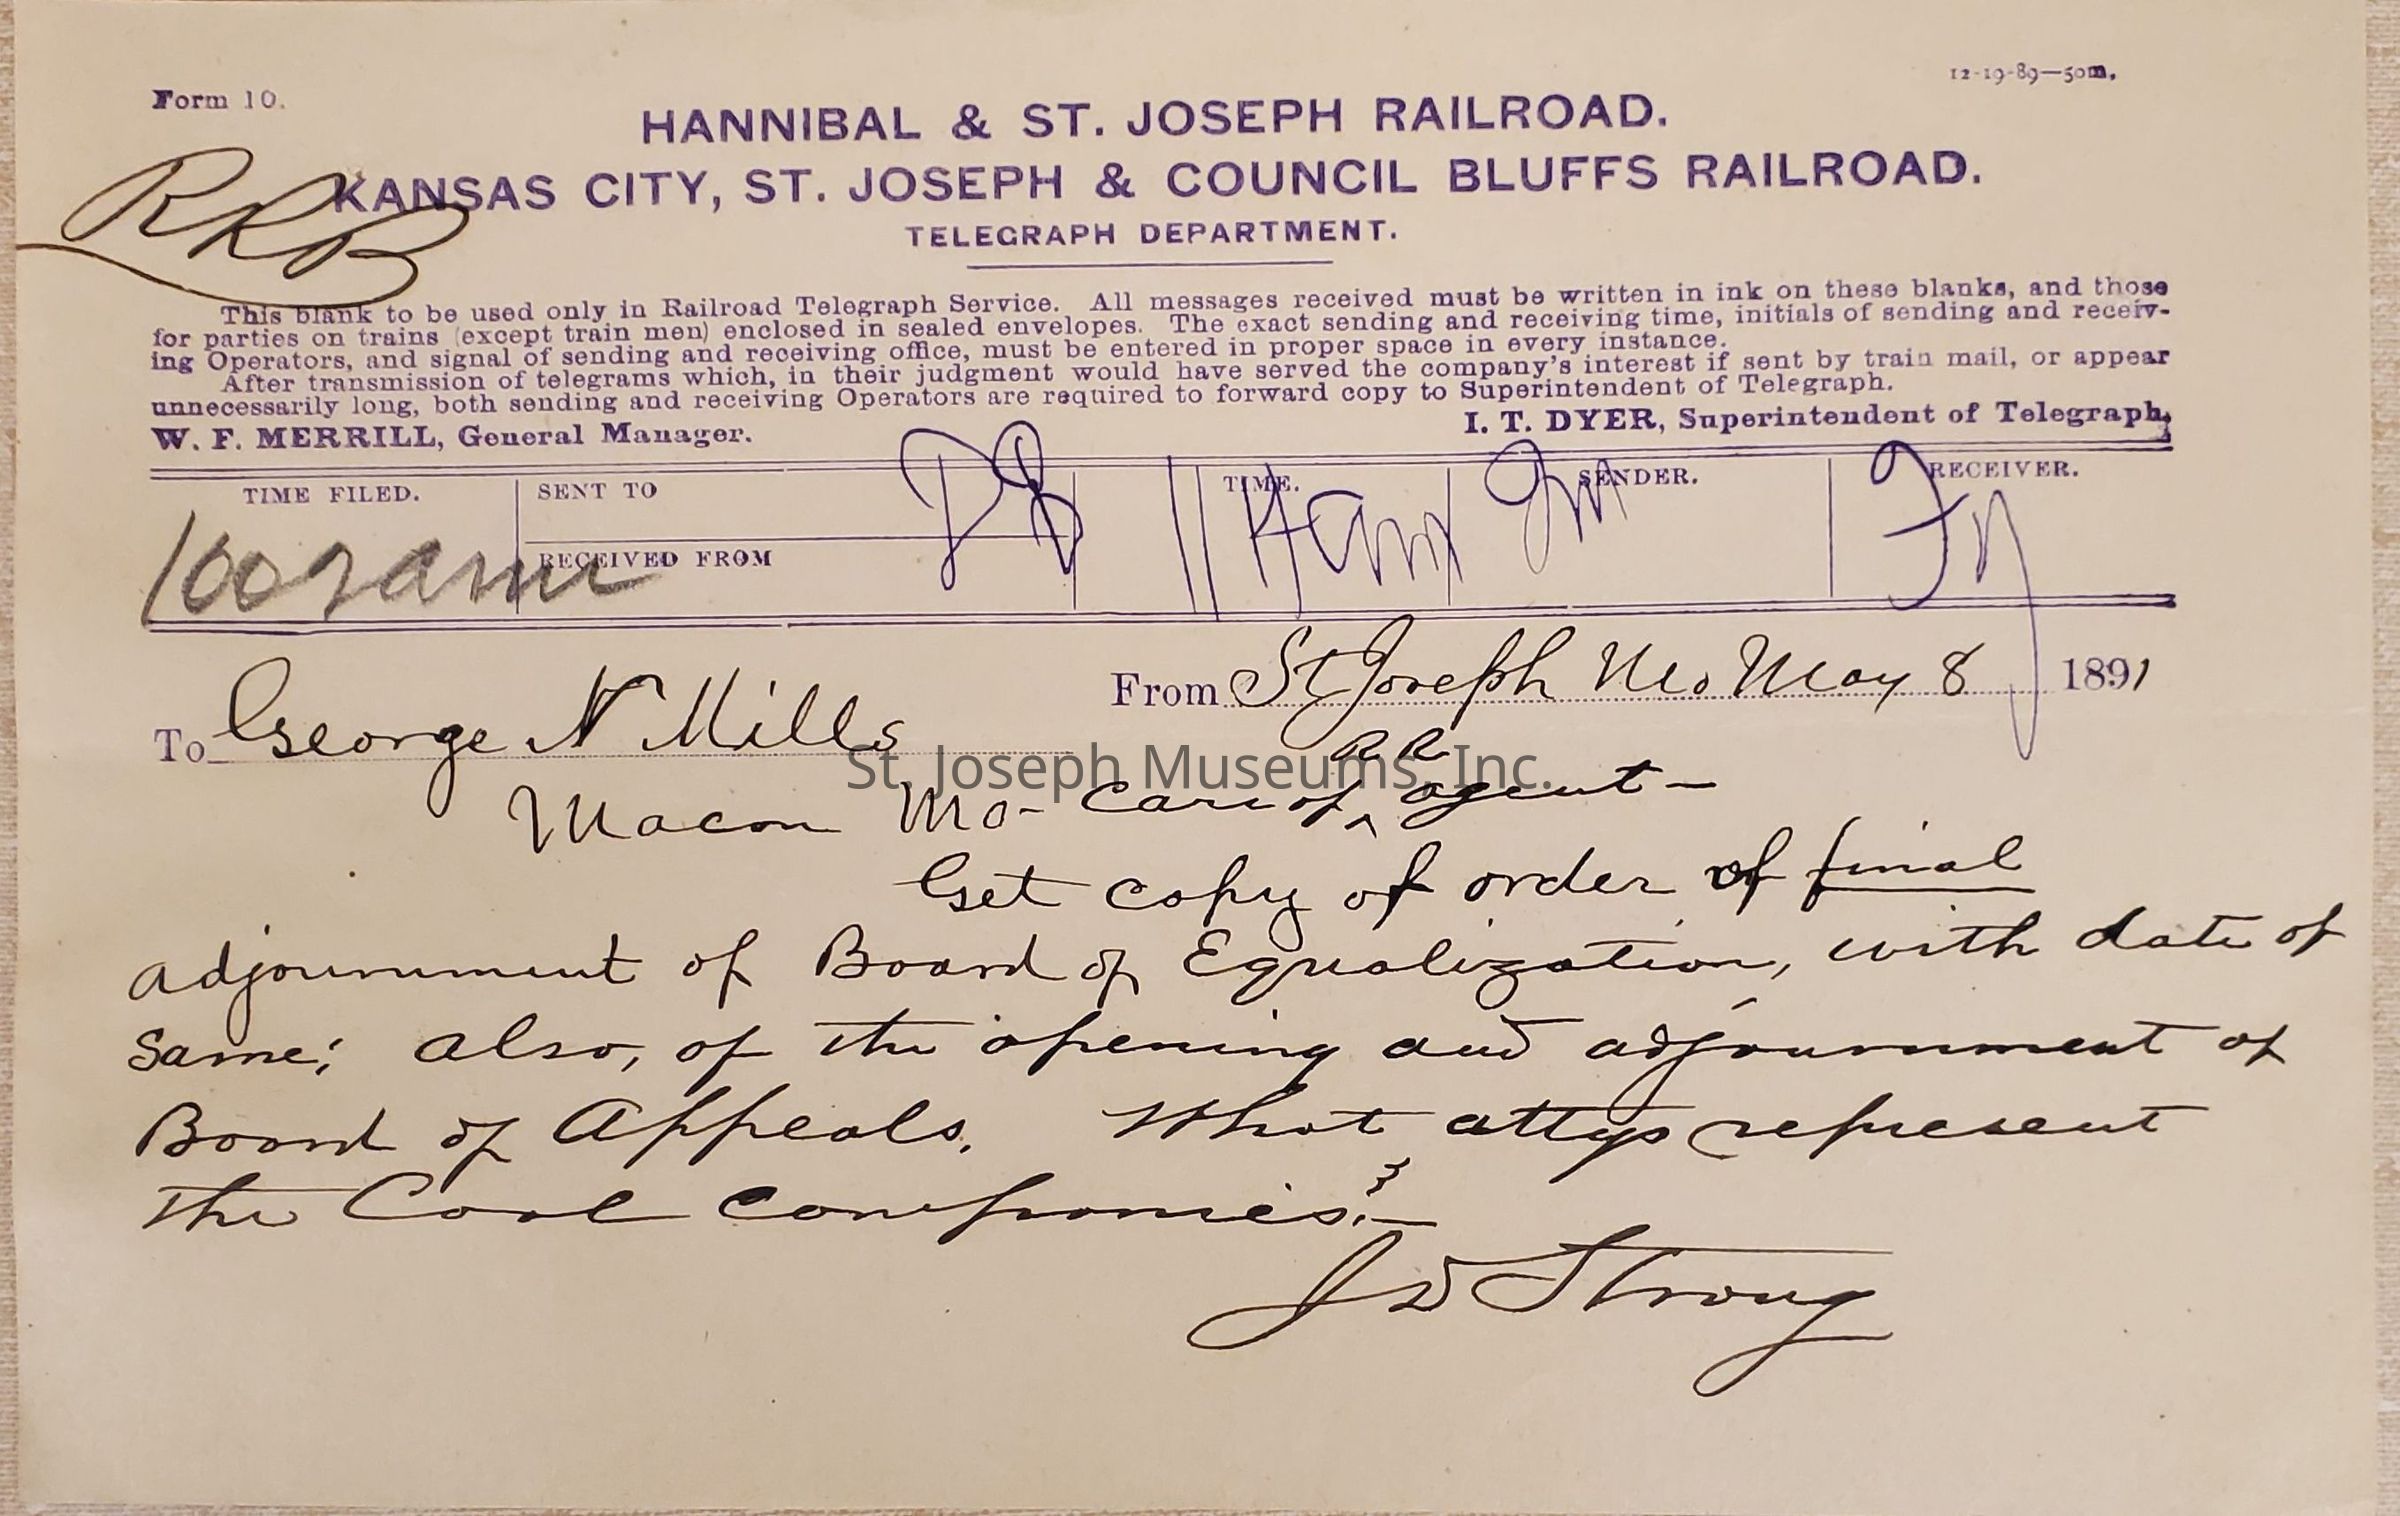 Form 10.
12-19-89—50m.
HANNIBAL & ST. JOSEPH RAILROAD.
KANSAS CITY, ST. JOSEPH & COUNCIL BLUFFS RAILROAD.
RRB
TELEGRAPH DEPARTMENT.
This blank to be used only in Railroad Telegraph Service. All messages received must be written in ink on these blanks, and those
for parties on trains (except train men) enclosed in sealed envelopes. The exact sending and receiving time, initials of sending and receiv-
ing Operators, and signal of sending and receiving office, must be entered in proper space in every instance.
After transmission of telegrams which, in their judgment would have served the company's interest if sent by train mail, or appear
unnecessarily long, both sending and receiving Operators are required to forward copy to Superintendent of Telegraph.
W. F. MERRILL, General Manager. I. T. DYER, Superintendent of Telegraph.
TIME FILED. SENT TO TIME. SENDER. RECEIVER.
RECEIVED FROM
From St Joseph Mo May 8 1891
To George N Mills
St. Joseph Museums, Inc.
Macon Mo- care of ^ RR agent —
Get copy of order of final
adjournment of Board of Equalization, with date of
same; also, of the opening and adjournment of
Board of Appeals. What attys represent
the Coal companies?—
J W Strong